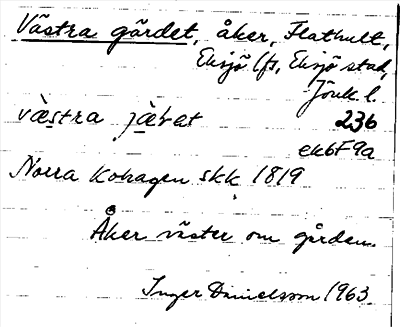 Västra gärdet, åker, Flathult,
Eksjö lfs, Eksjö stad,
Jönk. l.
væstra jæret 236
ek6F9a
Norra Kohagen skk 1819
Åker väster om gården.
Inger Danielsson 1963.